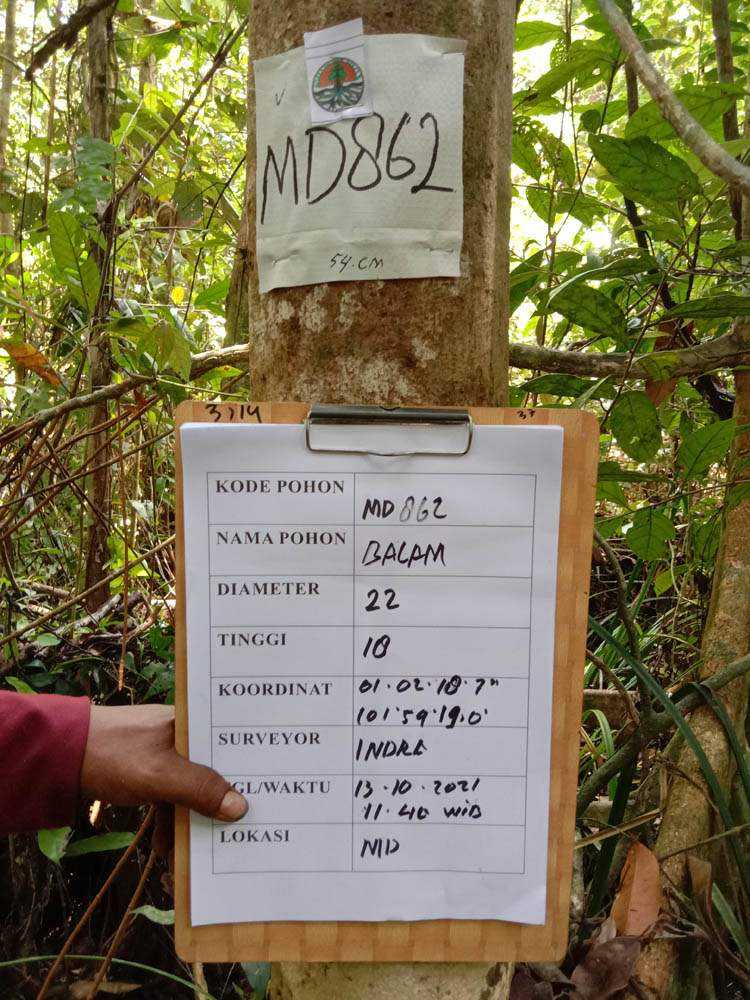 MD862
54.CM
3,14
37
KODE POHON MD 862
NAMA POHON BALAM
DIAMETER 22
TINGGI 18
KOORDINAT 01.02.18.7"
101.59.19.0'
SURVEYOR INDRA
GL/WAKTU 13.10.2021
11.40 WIB
LOKASI MD